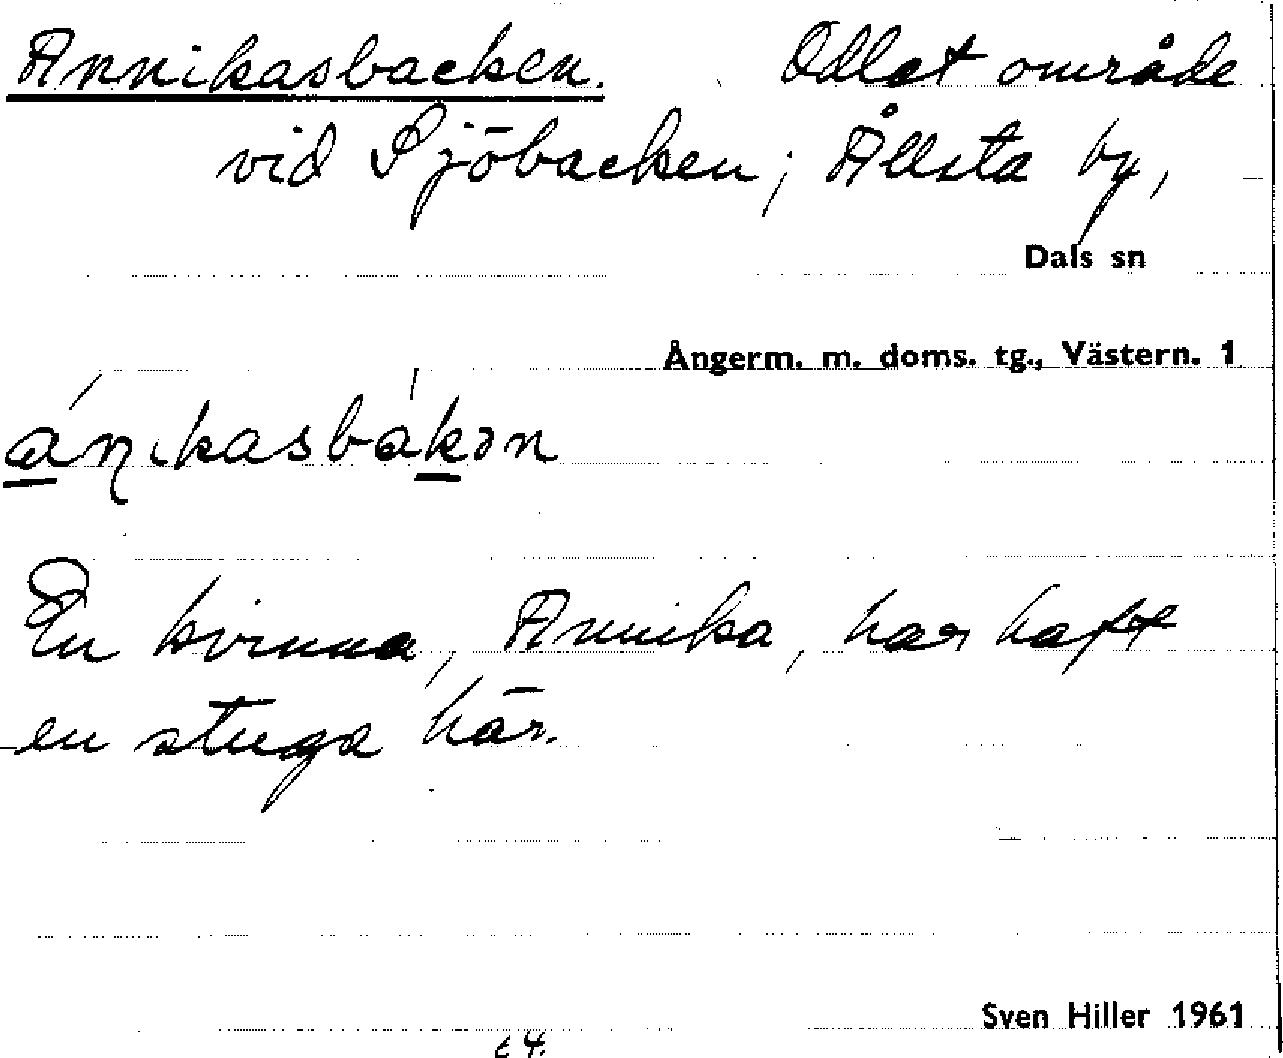 Annikasbacken. Odlat område
vid Sjöbacken, Ållsta by,
Dals sn
Ångerm. m. doms. tg., Västern. 1
ánikasbákən
En kvinna, Annika, har haft
en stuga här.
Sven Hiller 1961